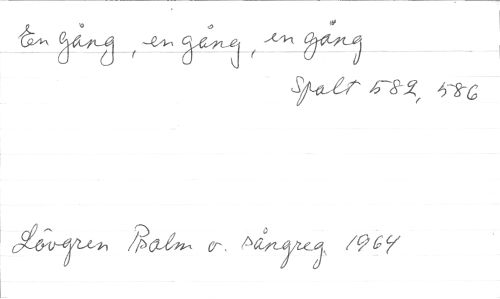 En gång, en gång, en gång
Spalt 582, 586
Lövgren Psalm o. sångreg. 1964